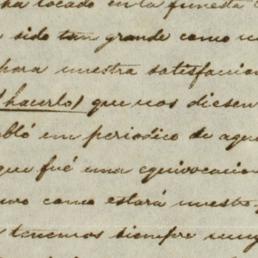 ha tocado en la funesta
sido tan grande como u
hora nuestra satisfacion
(hacerlo) que nos diesen
bló un periodico de agu
que fué una equivocacion
uro como estará nuestro
tenemos siempre muy